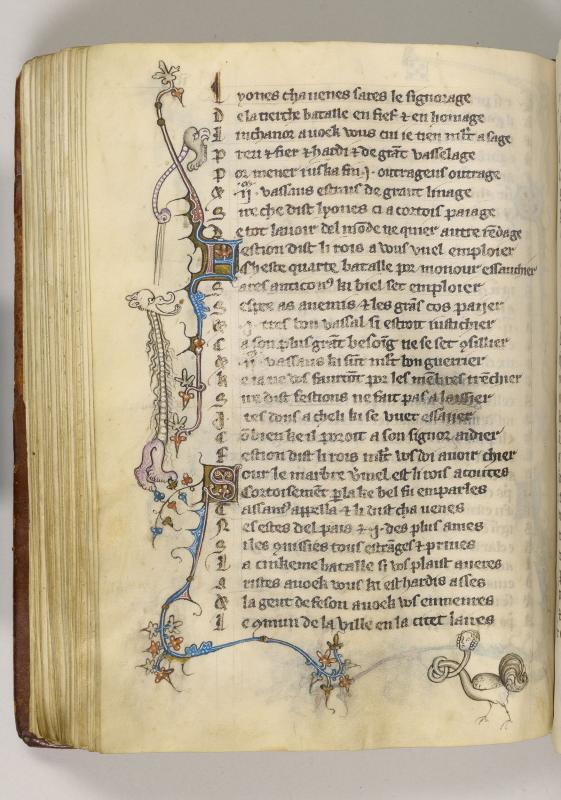 L yones cha venes sares le signorage
D e la tierche batalle en fief & en homage
L inchanor avoek vous cui ie tien mlt a sage
P reu & fier & hardi & de grãt vasselage
P or mener iuska fin .j. outrageus outrage
& .ij. vassaus estraus de grant linage
S ire che dist lyones ci a cortois paiage
D e tot lavoir del mõde ne quier autre rẽdage
F estion dist li rois a vous vuel emploier
C heste quarte batalle por monour essauchier
S ares antico ki biel set emploier
S espee as anemis & les grãs cos paijer
& .j. tres bon vassal si estroit iusticher
C a son plus grãt besoĩg ne se set 9sillier
& .ij. vassaus ki sũt mlt bon guerrier
K e ia ne vos faurrõt por les mẽbres trẽchier
S ire dist festions ne fait pas a laissier
J tes dons a cheli ki se vuet essaijer
C õbien ke il poroit a son signor aidier
F estion dist li rois mlt vos doi avoir chier
S our le marbre vmel est li rois acoutes
C ortoisemẽt parla ke bel fu emparles
C assan9 appella & li dist cha venes
N es estes del pais & .j. des plus ames
S i les 9nissies tous estrãges & prives
L a cinkeme batalle si vos plaist averes
A ristes avoek vous ki est hardis asses
& la gent de feson avoek vos enmenres
L e 9mun de la ville en la citet laires